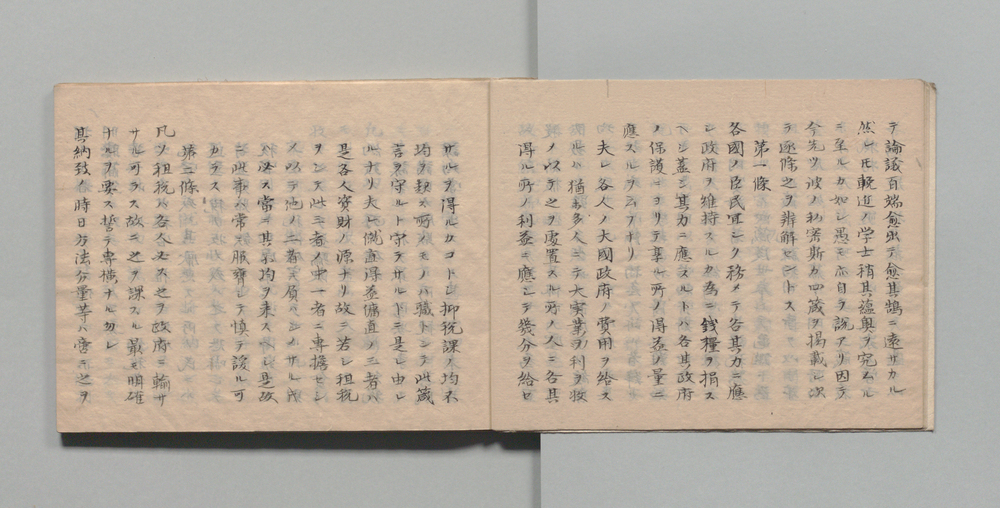 テ論議百端愈出テ愈其鵠ニ遠サカル
然レ𪜈輓近ノ学士稍其蘊奥ヲ究ムル
ニ至ルカ如シ愚モ亦自ラ説アリ因テ
今先ツ彼ノ斯カ四箴ヲ掲載シ次
テ逐條之ヲ辨解セントス
第一條
各國ノ臣民宜シク務メテ各其力ニ應
シ政府ヲ維持スルカ為ニ銭糧ヲ捐ス
ヘシ蓋シ其力ニ應スルトハ各其政府
ノ保護ニヨリテ享ル所ノ得益ノ量ニ
應スルヲ云フナリ
夫レ各人ノ大國政府ノ費用ヲ給ス
ルハ猶多人ニテ大実業ヲ利ヲ收
メ以テ之ヲ處置スル所ノ人ニ各其
得ル所ノ利益ニ應シテ幾分ヲ給セ
サルヲ得サルカコトシ抑税課ノ均不
均ヲ致ス所ノモノハ職トシテ此箴
言ヲ守ルト守ラサルトニ是レ由レ
ルナリ夫レ僦直得益傭直ノ三者ハ
是各人貲財ノ源ナリ故ニ若シ租税
ヲシテ此三者ノ中一者ニ専擔セシ
メ以テ他ノ二者ヲ負ハシメサル時
ハ必ス當ニ其不均ヲ来スヘシ是故
ニ此事ハ常ニ服膺シテ慎テ諼ル可
カラス
第二條
凡ソ租税ハ各人必ス之ヲ政府ニ輸サ
サル可ラス故ニ之ヲ課スル最モ明確
ナルヲ要ス誓テ専横ナル勿レ
其納致ノ時日方法分量等ハ之ヲ